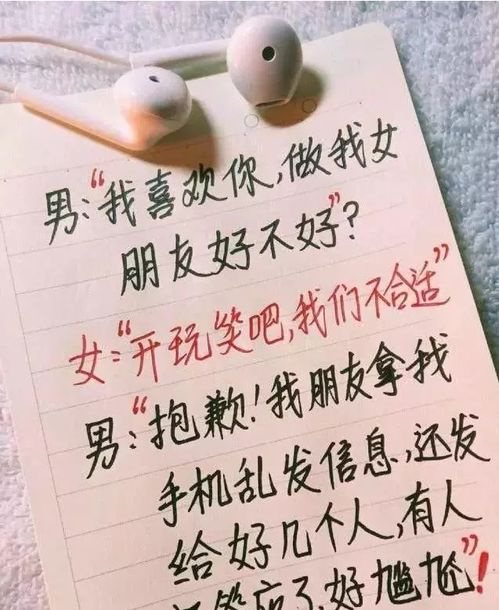 男:“我喜欢你,做我女
朋友好不好”?
女:“开玩笑吧,我们不合适”
男:“抱歉!我朋友拿我
手机乱发信息,还发
给好几个人,有人
答应了,好尴尬”!